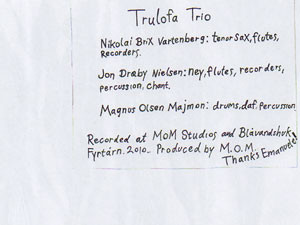 Trulofa Trio
Nikolai Brix Vartenberg: tenor sax, flutes,
recorders.
Jon Draby Nielsen: ney, flutes, recorders,
percussion, chant.
Magnus Olsen Majmon: drums, daf, percussion
Recorded at MoM Studios and Blåvandshuk
Fyrtårn. 2010. Produced by M.O.M.
Thanks Emanuele